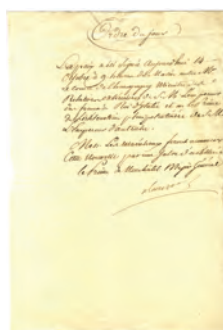 Ordre du jour
La paix a été signée aujourd'hui 14
Octobre à 9 heures du Matin entre Mr
le comte de Champagny Ministre des
Relations extérieures de S. M. L'empereur
de france Roi d'italie et
plénipotentiaire de S. M.
L'Empereur d'autriche.
cette nouvelle par une salve d'artillerie
le Prince de Neuchâtel Major Général